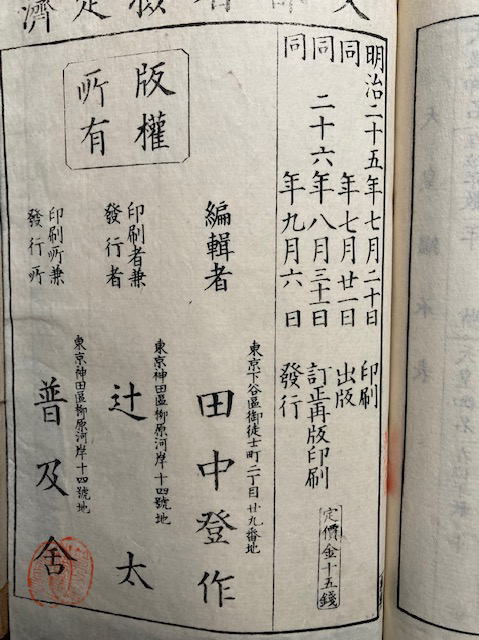 文部省檢定濟
明治二十五年七月二十日印刷
同年七月廿一日出版
同二十六年八月三十一日訂正再版印刷
同年九月六日發行
定價金十五錢
版權所有
東京下谷區御徒士町二丁目廿九番地
編輯者 田中登作
東京神田區柳原河岸十四號地
印刷者兼發行者 辻太
東京神田區柳原河岸十四號地
印刷所兼發行所 普及舍